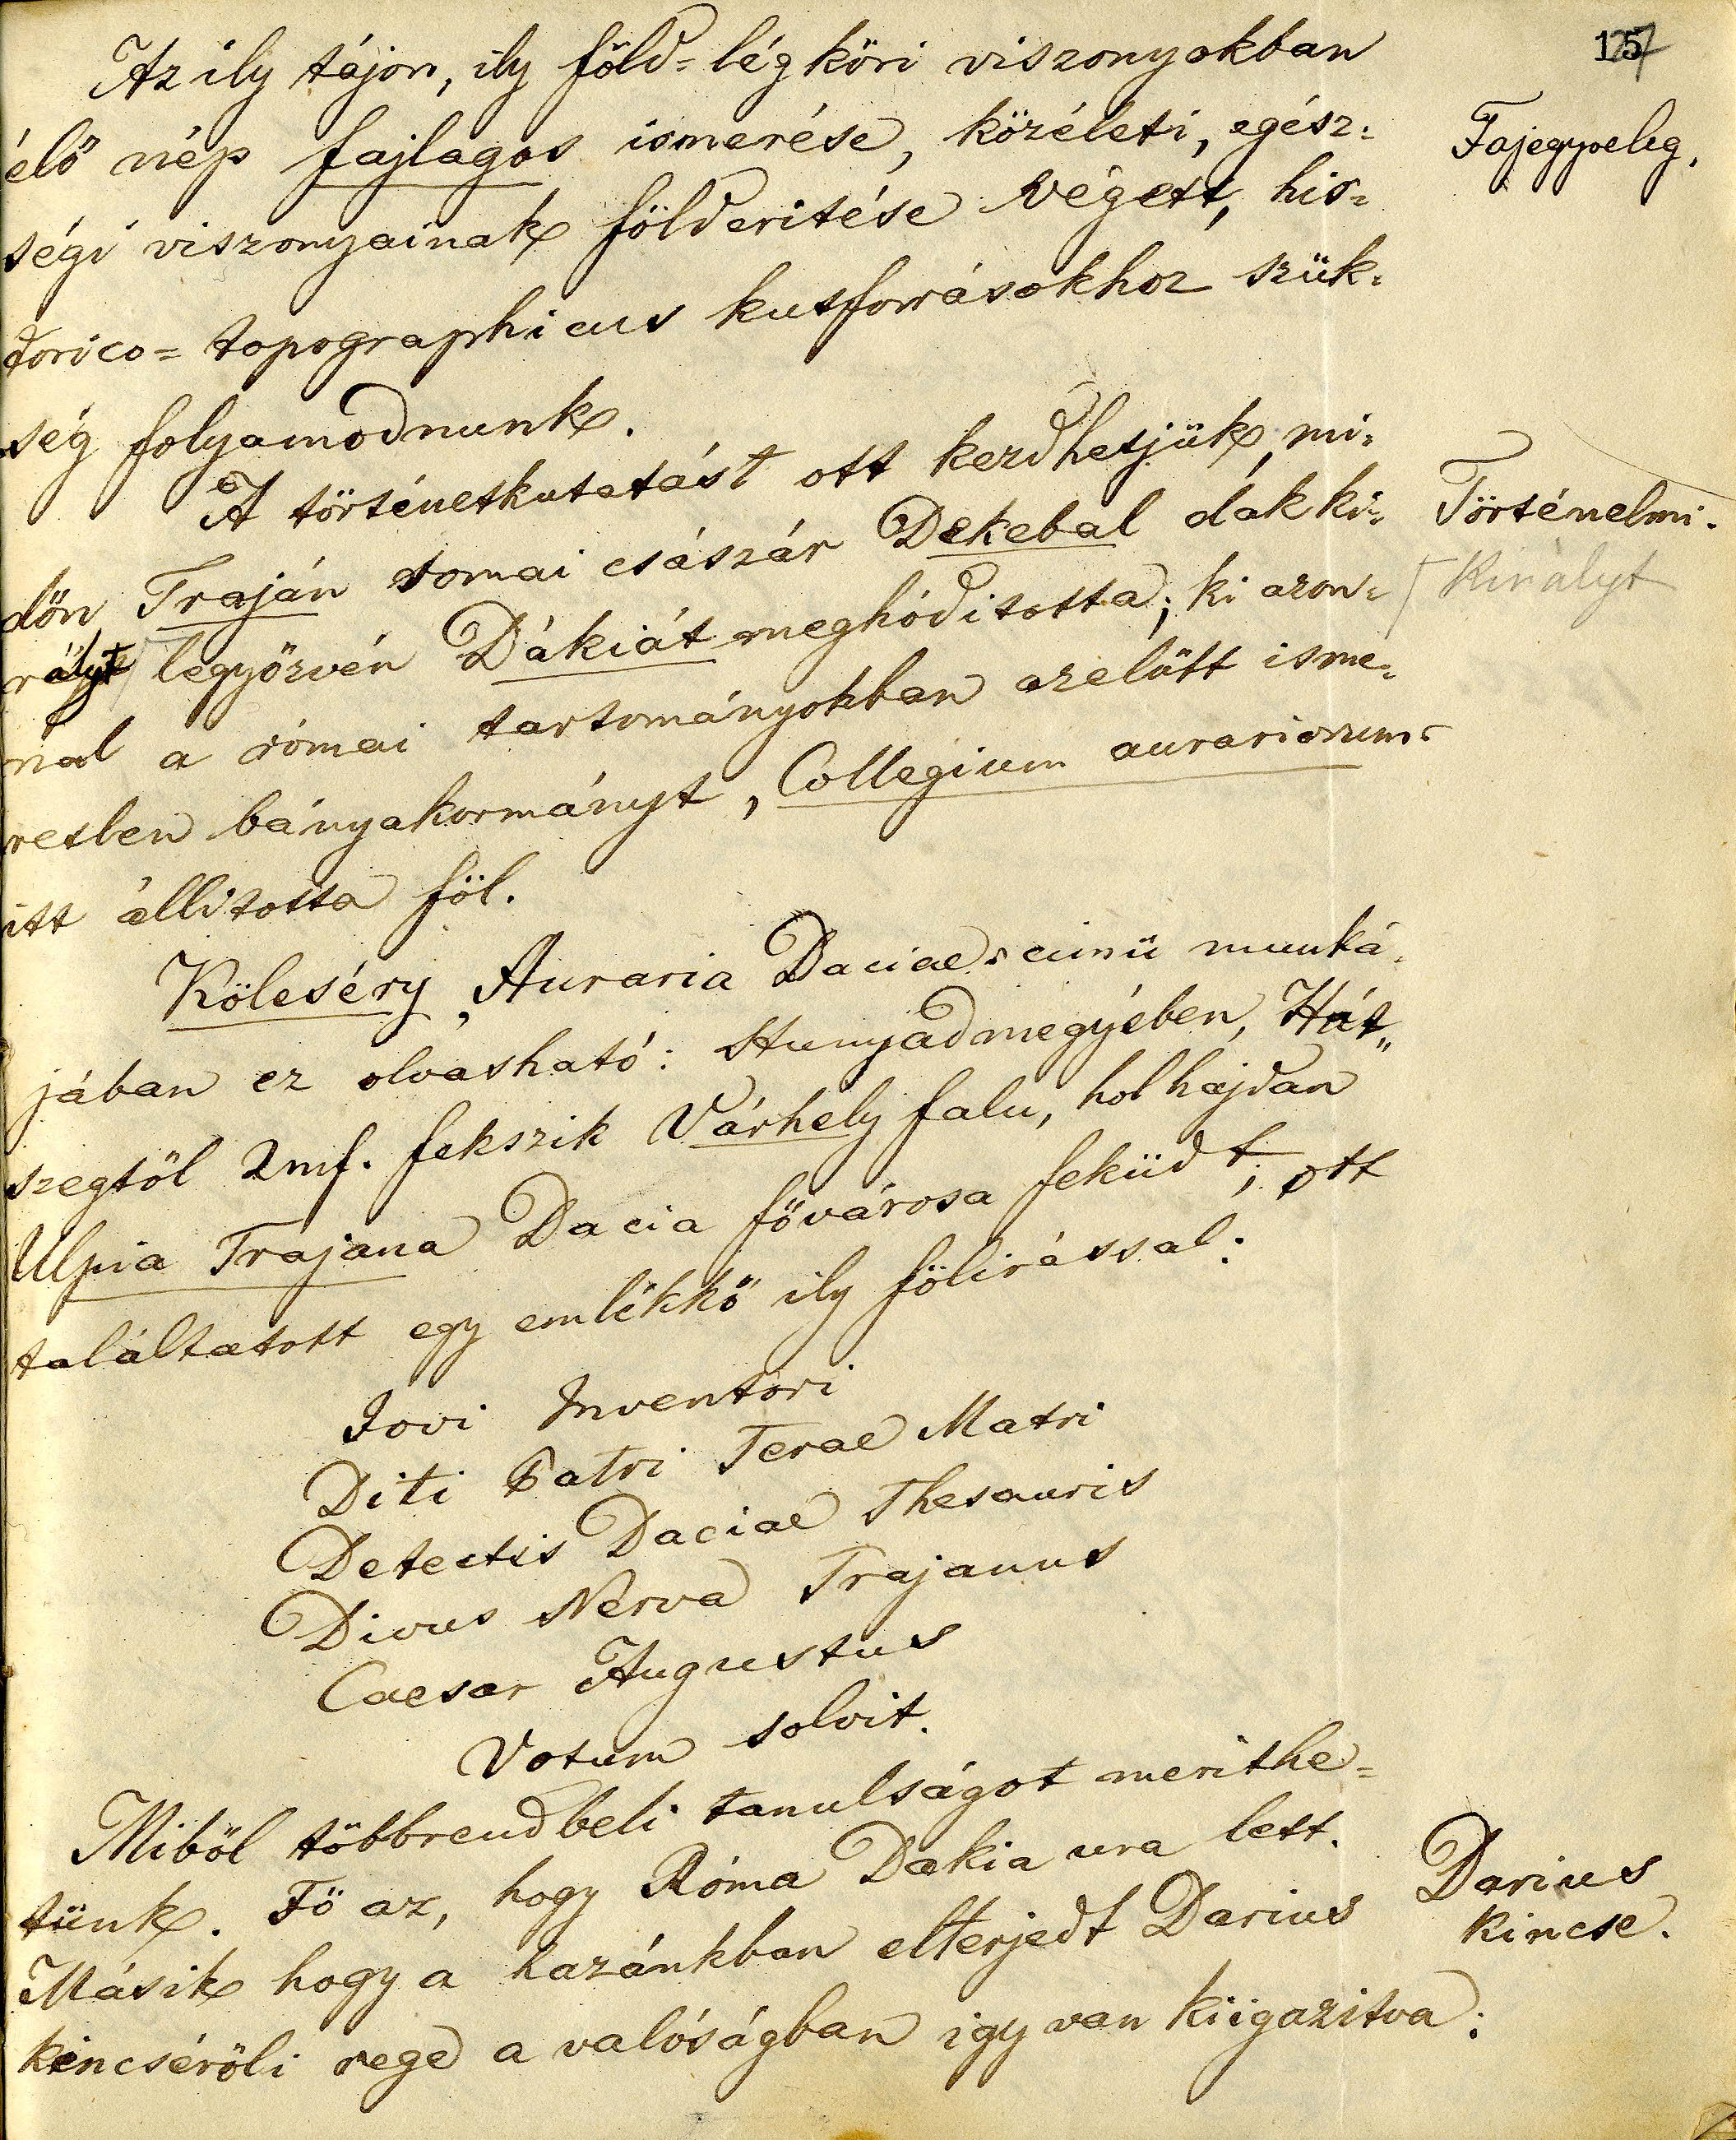 157
Az ily tájon, ily föld-légköri viszonyokban
élő nép fajlagos ismerése, közéleti, egész-
Fajegyveleg.
ségi viszonyainak földeritése végett, his-
torico-topographicus kutforrásokhoz szük-
ség folyamodnunk.
A történetkutatást ott kezdhetjük, mi-
Történelmi.
dőn Traján romai császár Dekebal dák ki-
Királyt
rályt legyőzvén Dákiát meghóditotta; ki azon-
nal a római tartományokban azelőtt isme-
retlen bányakormányt, Collegium aurariorum-
itt állitotta föl.
Köleséry „Auraria Daciae" cimü munká-
jában ez olvasható: Hunyadmegyében, Hát-
szegtől 2 mf. fekszik Várhely falu, hol hajdan
Ulpia Trajana Dacia fővárosa feküdt; ott
találtatott egy emlékkő ily fölirással:
Jovi Inventori
Diti Patri Terae Matri
Detectis Daciae Thesauris
Divus Nerva Trajanus
Caesar Augustus
Votum solvit.
Miből többrendbeli tanulságot merithe-
tünk. Fő az, hogy Róma Dakia ura lett.
Másik hogy a hazánkban elterjedt Darius
Darius
kincse.
kincséröli rege a valóságban igy van kiigazitva: